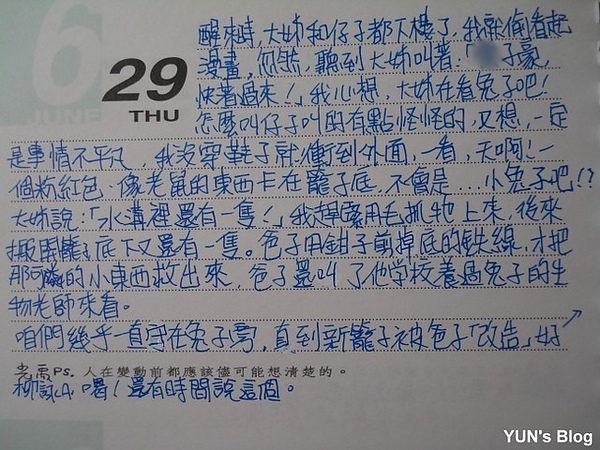 6
JUNE
29
THU
醒來時,大姊和仔子都下樓了,我就倒看起
漫畫,忽然,聽到大姊叫著:「子豪,
快著過來!」我心想,大姊在看兔子吧!
怎麼叫仔子叫的有點怪怪的,又想,一定
是事情不平凡,我沒穿鞋子就衝到外面,一看,天啊!一
個粉紅色,像老鼠的東西卡在籠子底,不會是...小兔子吧!?
大姊說:「水溝裡還有一隻!」我趕緊用毛抓牠上來,後來
搬開籠子底下又還有一隻。爸子用鉗子剪掉底的鉄線,才把
那可憐的小東西救出來,爸子還叫了他學校養過兔子的生
物老師來看。
咱們幾乎一直守在兔子旁,直到新籠子被爸子「改造」好
PS. 人在變動前都應該儘可能想清楚的。
啊!還有時間說這個。
YUN's Blog